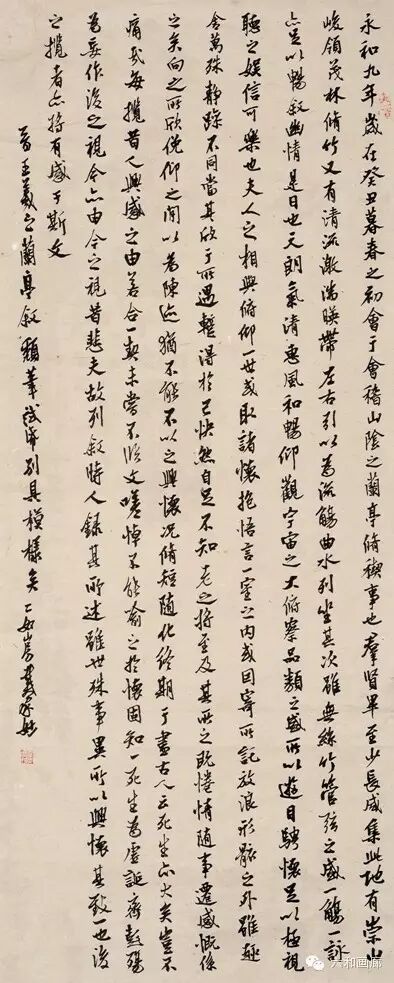 永和九年歲在癸丑暮春之初會于會稽山陰之蘭亭脩禊事也羣賢畢至少長咸集此地有崇山
峻領茂林脩竹又有清流激湍暎帶左右引以為流觴曲水列坐其次雖無絲竹管弦之盛一觴一詠
亦足以暢敘幽情是日也天朗氣清惠風和暢仰觀宇宙之大俯察品類之盛所以遊目騁懷足以極視
聽之娛信可樂也夫人之相與俯仰一世或取諸懷抱悟言一室之內或因寄所託放浪形骸之外雖趣
舍萬殊靜躁不同當其欣于所遇暫得於己快然自足不知老之將至及其所之既惓情隨事遷感慨係
之矣向之所欣俛仰之間以為陳迹猶不能不以之興懷況脩短隨化終期于盡古人云死生亦大矣豈不
痛哉每攬昔人興感之由若合一契未嘗不臨文嗟悼不能喻之於懷固知一死生為虛誕齊彭殤
為妄作後之視今亦由今之視昔悲夫故列敘時人錄其所述雖世殊事異所以興懷其致一也後
之攬者亦將有感于斯文
晉王羲之蘭亭敘頹筆試別具模樣矣
和画廊